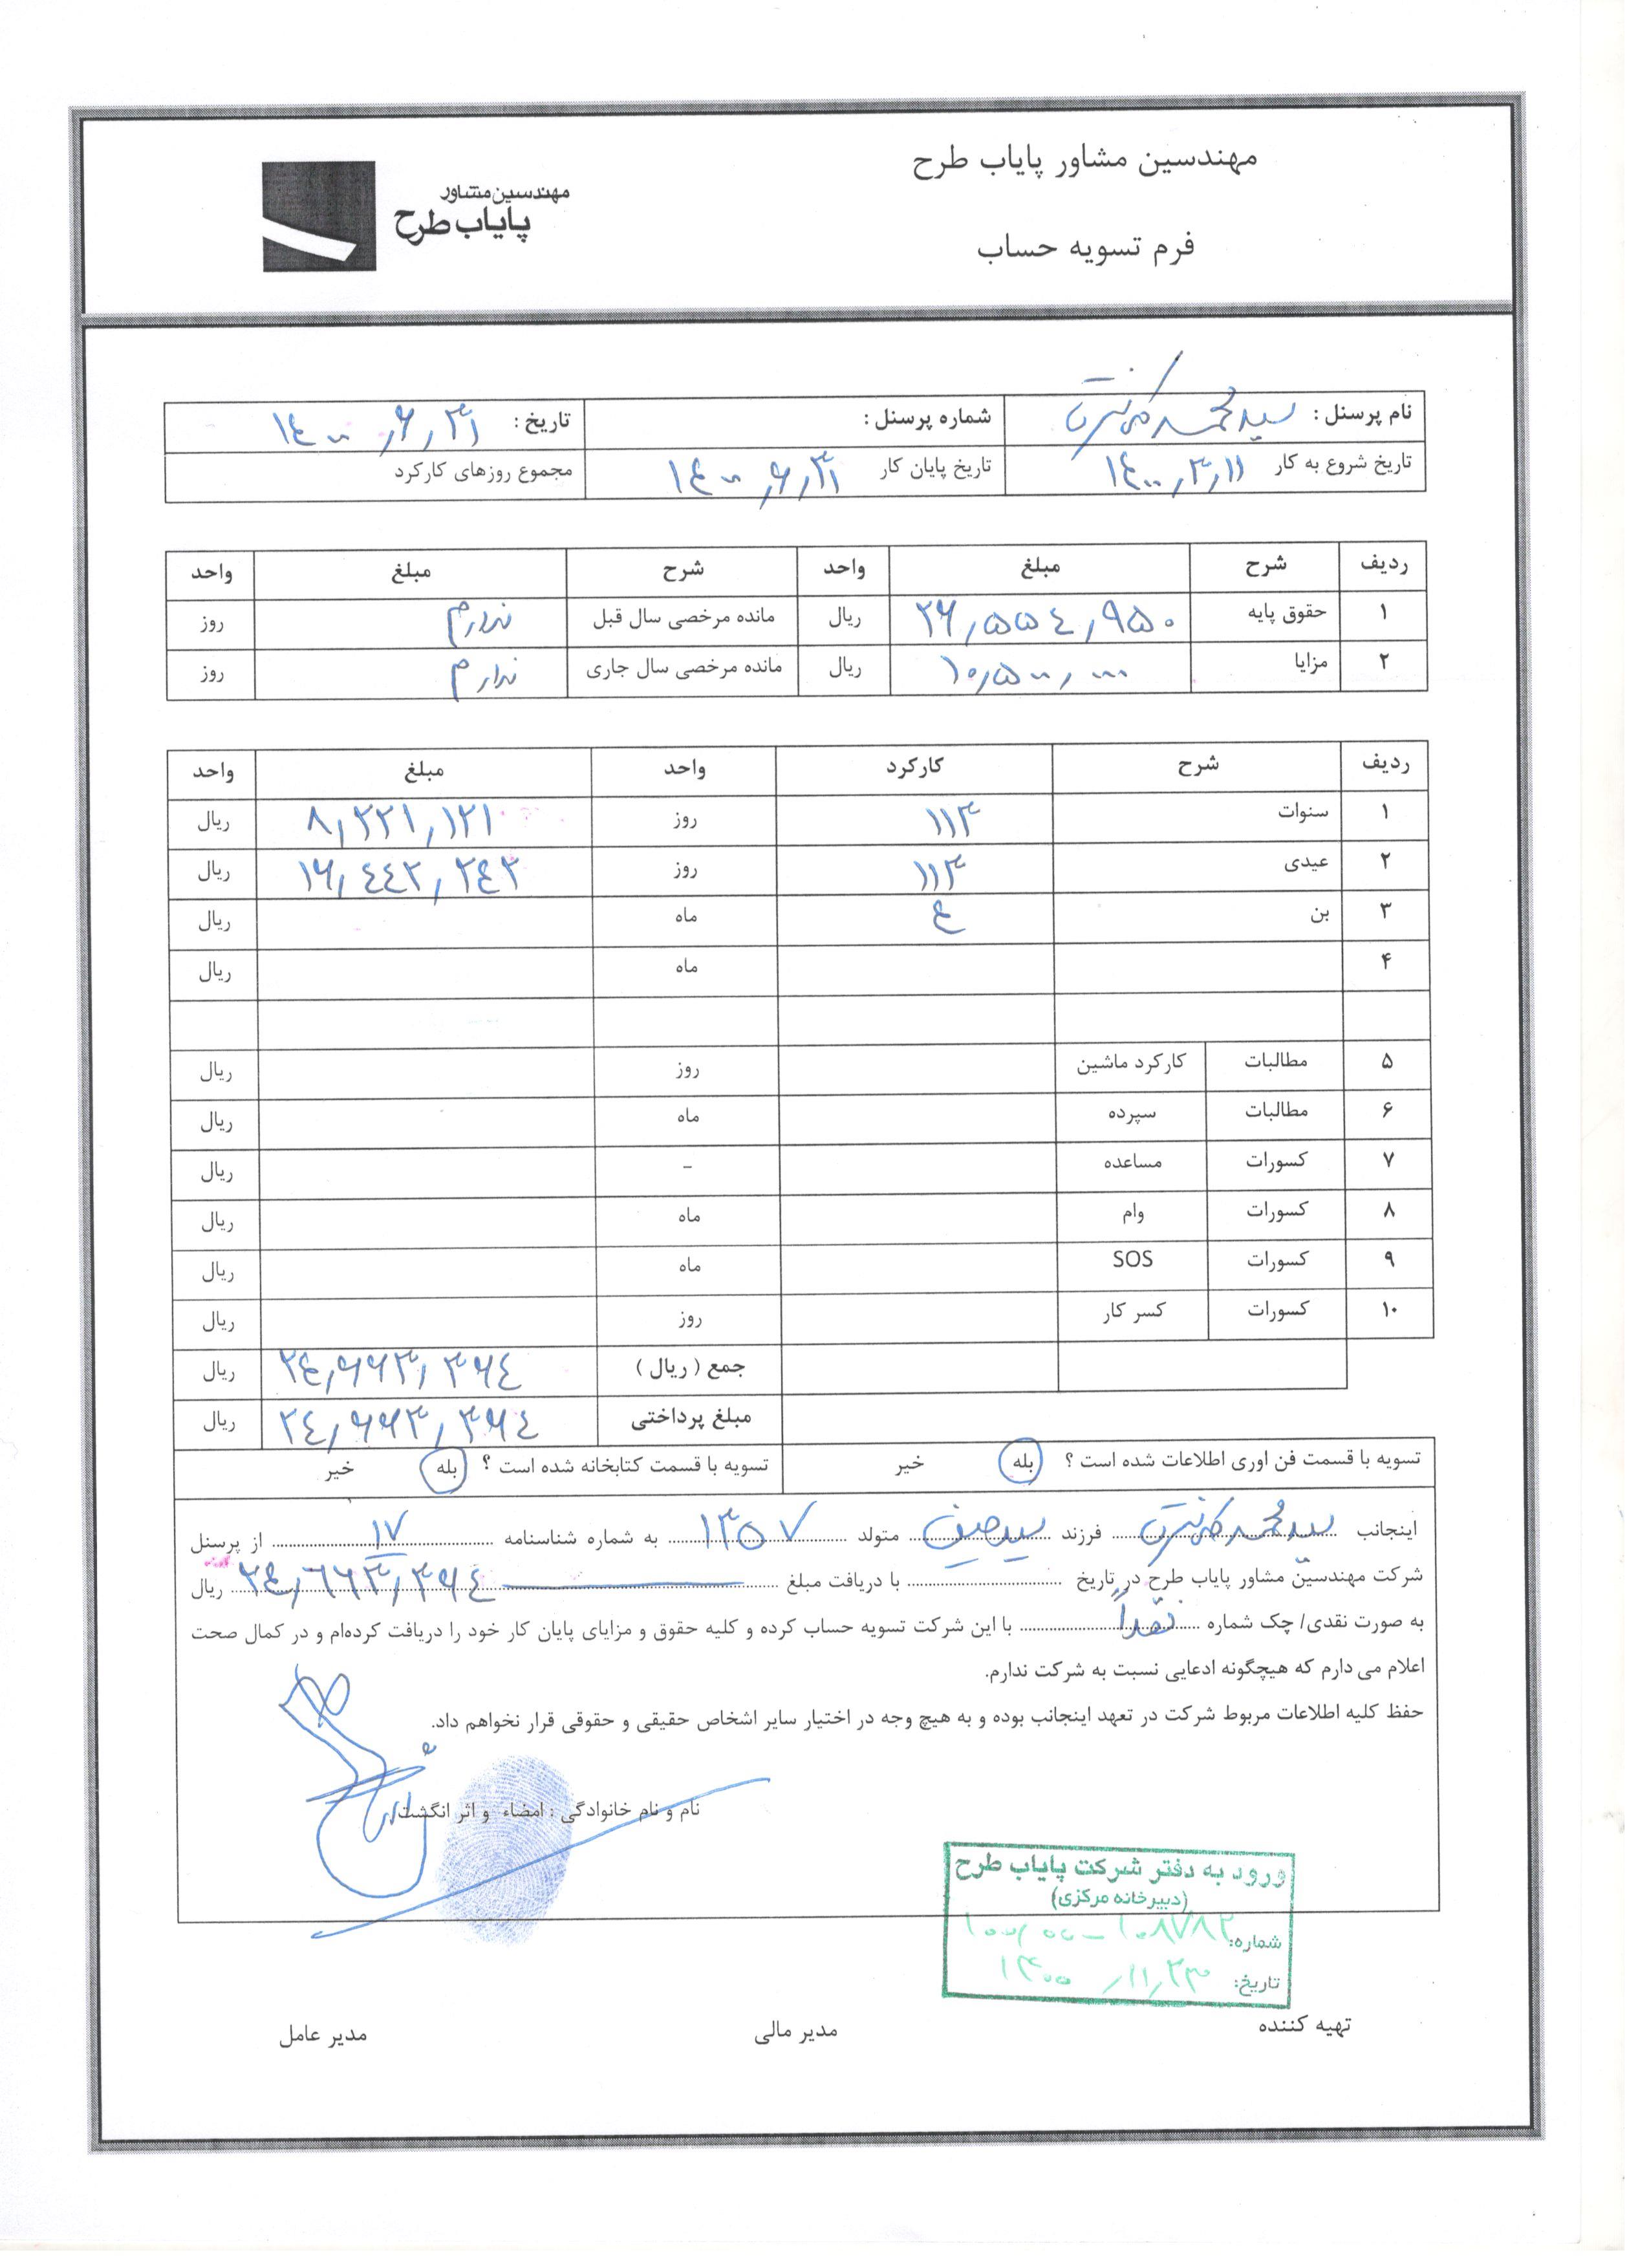 مهندسین مشاور پایاب طرح
مهندسین مشاور
پایاب طرح
فرم تسویه حساب
نام پرسنل : سید محمد شماره پرسنل : تاریخ : ۱۴۰۰٫۶٫۳۱
تاریخ شروع به کار ۱۴۰۰٫۳٫۱۱ تاریخ پایان کار ۱۴۰۰٫۶٫۳۱ مجموع روزهای کارکرد
ردیف شرح مبلغ واحد شرح مبلغ واحد
۱ حقوق پایه ۲۶٫۵۵۴٫۹۵۰ ریال مانده مرخصی سال قبل ندارم روز
۲ مزایا ۱۰٫۵۰۰٫۰۰۰ ریال مانده مرخصی سال جاری ندارم روز
ردیف شرح کارکرد واحد مبلغ واحد
۱ سنوات ۱۱۳ روز ۸٫۲۲۱٫۱۲۱ ریال
۲ عیدی ۱۱۳ روز ۱۶٫۴۴۲٫۲۴۳ ریال
۳ بن ۴ ماه ریال
۴ ماه ریال
۵ مطالبات کارکرد ماشین روز ریال
۶ مطالبات سپرده ماه ریال
۷ کسورات مساعده - ریال
۸ کسورات وام ماه ریال
۹ کسورات SOS ماه ریال
۱۰ کسورات کسر کار روز ریال
جمع ( ریال ) ۲۴٫۶۶۳٫۳۶۴ ریال
مبلغ پرداختی ۲۴٫۶۶۳٫۳۶۴ ریال
تسویه با قسمت فن اوری اطلاعات شده است ؟ بله خیر تسویه با قسمت کتابخانه شده است ؟ بله خیر
اینجانب سید محمد فرزند سید متولد ۱۳۵۷ به شماره شناسنامه ۱۷ از پرسنل
شرکت مهندسین مشاور پایاب طرح در تاریخ با دریافت مبلغ ۲۴٫۶۶۳٫۳۶۴ ریال
به صورت نقدی/ چک شماره نقداً با این شرکت تسویه حساب کرده و کلیه حقوق و مزایای پایان کار خود را دریافت کرده‌ام و در کمال صحت
اعلام می دارم که هیچگونه ادعایی نسبت به شرکت ندارم.
حفظ کلیه اطلاعات مربوط شرکت در تعهد اینجانب بوده و به هیچ وجه در اختیار سایر اشخاص حقیقی و حقوقی قرار نخواهم داد.
نام و نام خانوادگی : امضاء و اثر انگشت
ورود به دفتر شرکت پایاب طرح
(دبیرخانه مرکزی)
شماره:
تاریخ: ۱۴۰۰٫۱۱٫۲۳
تهیه کننده مدیر مالی مدیر عامل